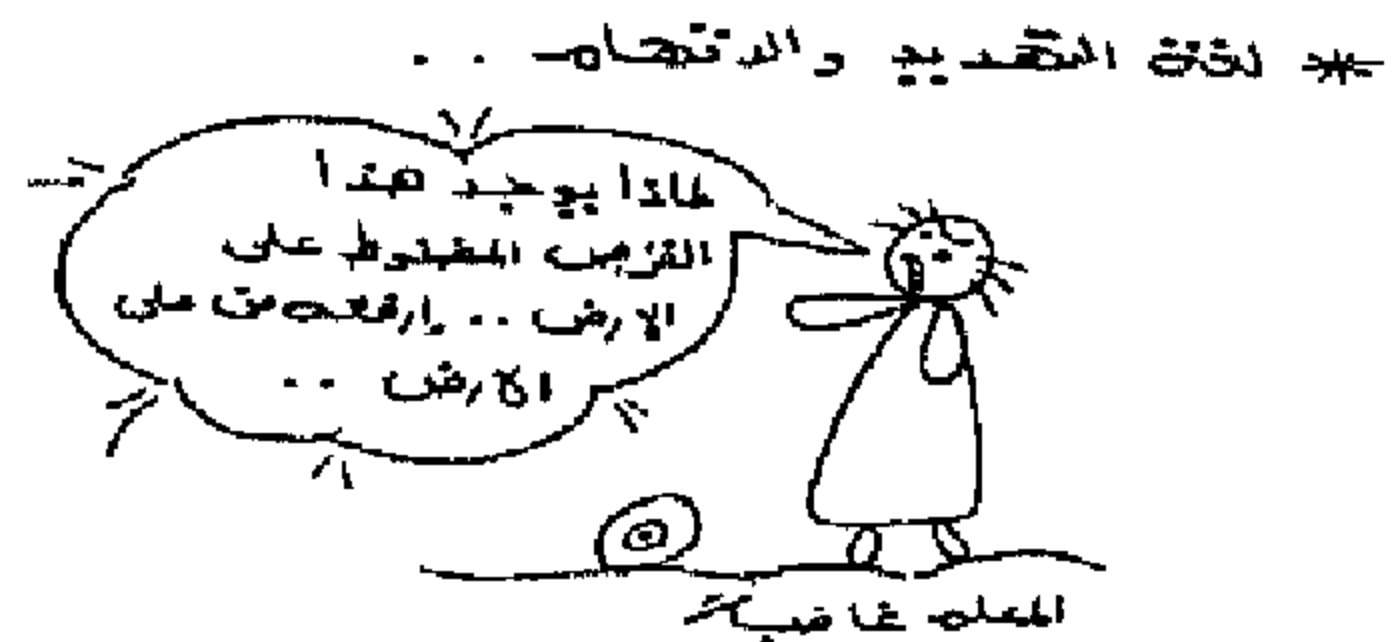 * لغة التهديد والاتهام . .
لماذا يوجد هذا
القرص المضغوط على
الارض .. إرفعه من على
الارض ..
المعلم غاضب